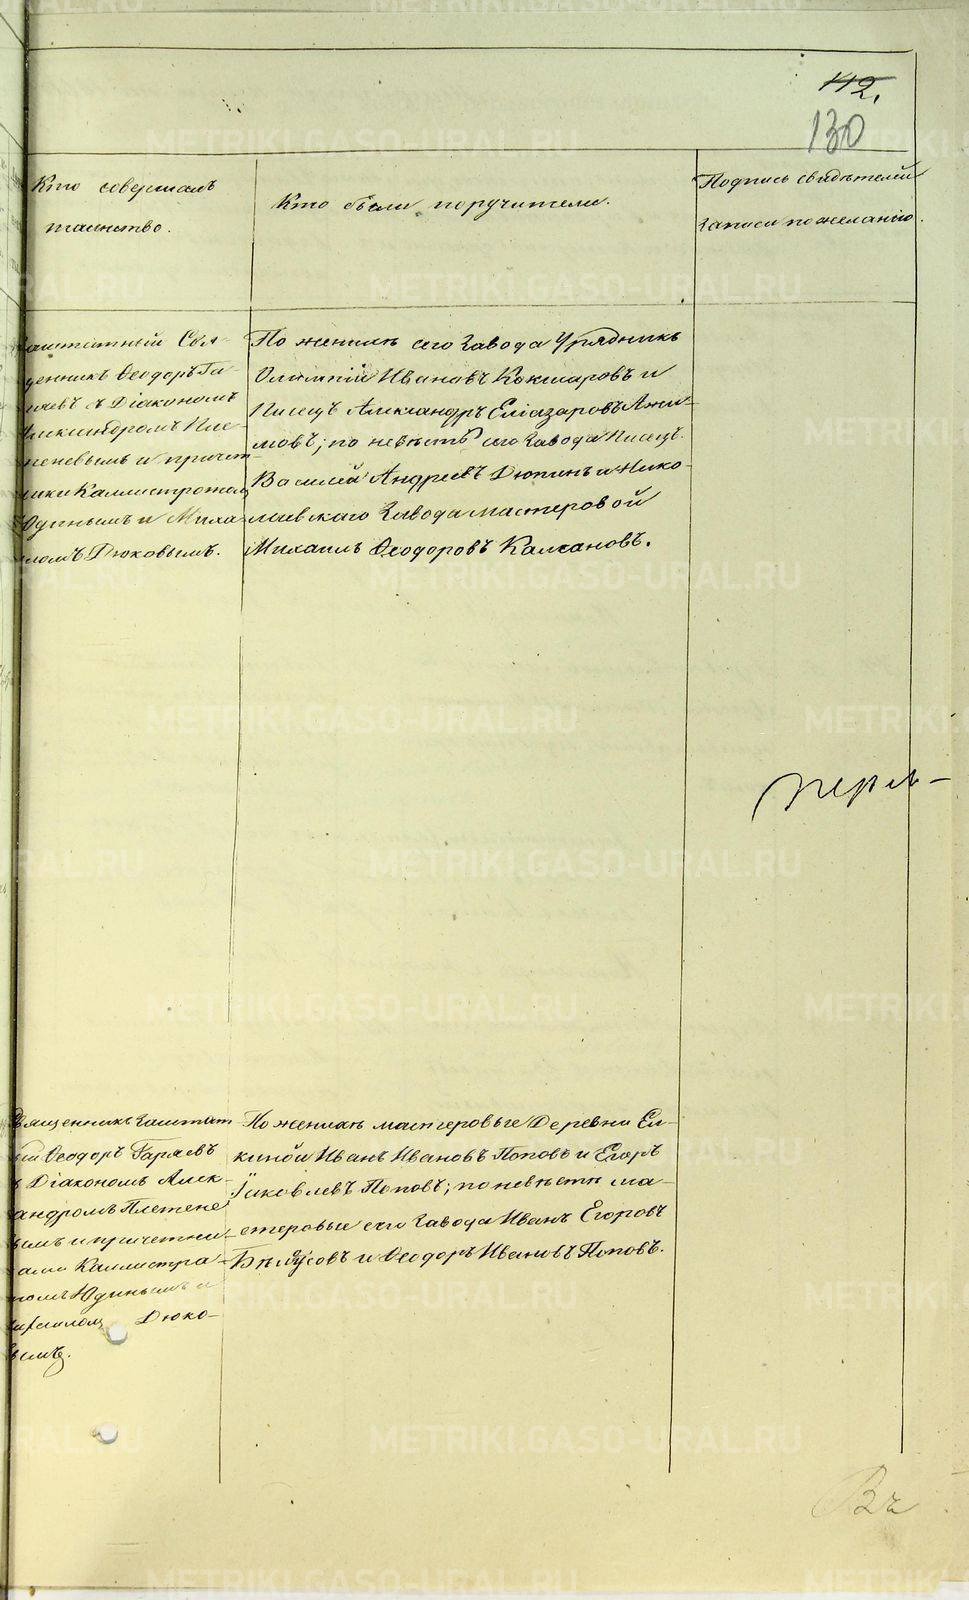 112.
130
Кто совершалъ
таинство.
Кто были поручители.
Подпись свидѣтелей
записи по желанію.
заштатный Свя-
щенникъ Ѳеодоръ Га-
ряевъ съ Діакономъ
Александромъ Пле-
теневымъ и причет-
никами Каллистратомъ
Юдинымъ и Миха-
иломъ Дюковымъ.
По женихѣ сего завода Урядникъ
Олимпій Ивановъ Кокшаровъ и
Писецъ Александръ Еліазаровъ Ахи-
мовъ; по невѣстѣ сего завода Писецъ
Василій Андреевъ Дюпинъ и Нико-
лаевскаго Завода мастеровой
Михаилъ Ѳеодоровъ Калгановъ.
Священникъ Заштат
ный Ѳеодоръ Гаряевъ
съ Діакономъ Алек-
сандромъ Плетене
вымъ и причетни-
ками Каллистра-
томъ Юдинымъ и
Михаиломъ Дюко-
вымъ.
По женихѣ мастеровые Деревни Ел-
киной Иванъ Ивановъ Поповъ и Егоръ
Іаковлевъ Поповъ; по невѣстѣ ма-
стеровые сего завода Иванъ Егоровъ
Бѣлоусовъ и Ѳеодоръ Ивановъ Поповъ.
METRIKI.GASO-URAL.RU